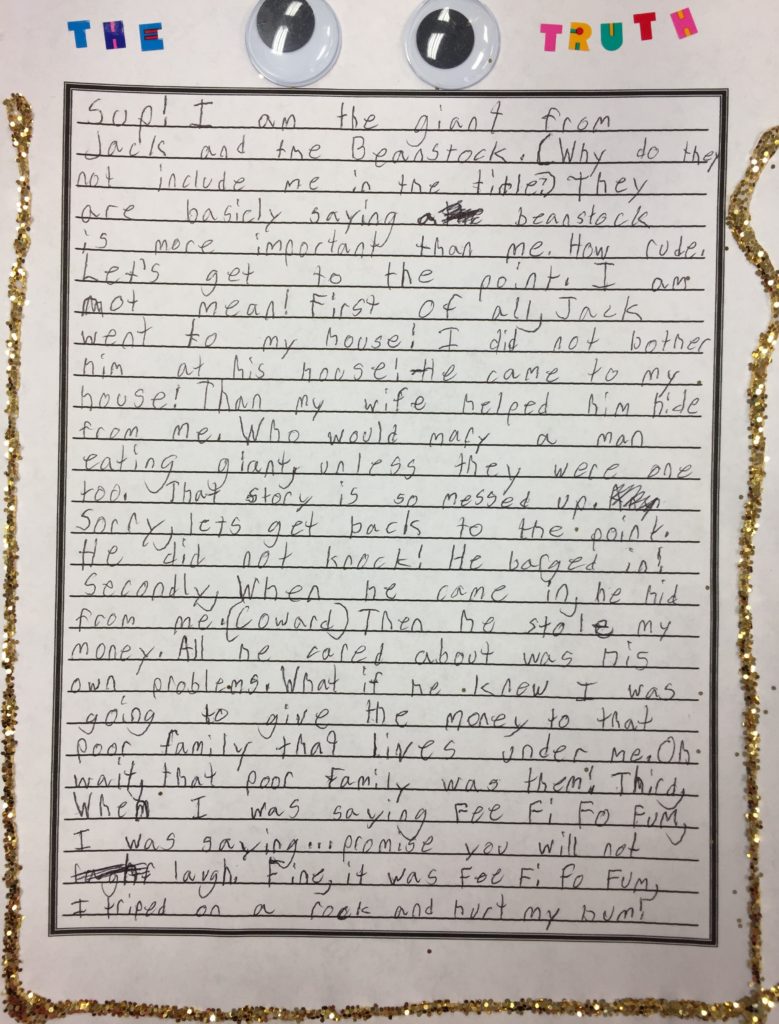 THE TRUTH
Sup! I am the giant from
Jack and the Beanstock. (Why do they
not include me in the title?) They
are basicly saying a beanstock
is more important than me. How rude.
Let's get to the point. I am
not mean! First of all, Jack
went to my house! I did not bother
him at his house! He came to my
house! Than my wife helped him hide
from me. Who would mary a man
eating giant, unless they were one
too. That story is so messed up.
Sorry, lets get back to the point.
He did not knock! He barged in!
Secondly, When he came in, he hid
from me. (Coward) Then he stole my
money. All he cared about was his
own problems. What if he knew I was
going to give the money to that
poor family that lives under me. Oh
wait, that poor family was them! Third,
When I was saying Fee Fi Fo Fum,
I was saying... promise you will not
laugh. Fine, it was Fee Fi Fo Fum,
I triped on a rock and hurt my bum!